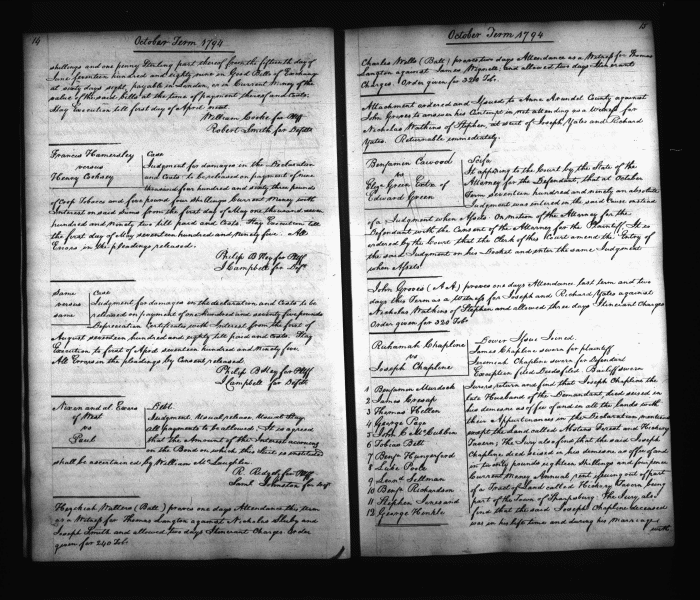 14
October Term 1794
shillings and one penny Sterling part thereof from the fifteenth day of
June seventeen hundred and eighty nine on Good Bills of Exchange
at sixty days sight, payable in London, or in Current money of the
value of the said bills at the time of payment thereof and Costs.
Stay Execution till first of April next.
William Cooke for Plff
Robert Smith for Defdt
Francis Hamersley
versus
Henry Cooksey
Case
Judgment for damages in the Declaration
and Costs to be released on payment of nine
thousand four hundred and sixty three pounds
of Crop Tobacco and five pound four shillings Current Money with
Interest on said Sums from the first day of May one thousand seven
hundred and ninety two till paid and Costs. Stay Execution till
the first day of May seventeen hundred and ninety five. All
Errors in the pleadings released.
Philip B Key for Plff
J Campbell for Deft
Same
versus
same
Case
Judgment for damages in the declaration and Costs to be
released on payment of one hundred and seventy five pounds
Depreciation Certificates with Interest from the first of
August seventeen hundred and eighty till paid and Costs. Stay
Execution to first of April seventeen hundred and ninety five.
All Errors in the pleadings by Consent released.
Philip B Key for Plff
J Campbell for Defdt
of West
vs
Paul
Debt
Judgment Usual release Usual Stay
all payments to be allowed. It is agreed
that the Amount of the Interest accruing
on the Bond on which this Suit is instituted
shall be ascertained by William McLaughlin
R. Ridgely for Plff
Saml Johnston for Deft
Hezekiah Watters (Balt.) proves two days Attendance this term
as a Witness for Thomas Langton against Nicholas Sluby and
Joseph Smith and allowed two days Itinerant Charges. Order
given for 240 Tob.
15
October Term 1794
Charles Wells (Balt) proves two days Attendance as a Witness for Thomas
Langton against James Wignell; and allowed two days Itinerant
Charges. Order given for 320 Tob.
Attachment ordered and Issued to Anne Arundel County against
John Groves to answer his Contempt in not attending as a Witness for
Nicholas Watkins of Stephen, at suit of Joseph Yates and Richard
Yates. Returnable immediately.
Benjamin Cawood
vs
Elizh Green Extx of
Edward Green
Scifa
It appearing to the Court by the State of the
Attorney for the Defendant, that at October
Term seventeen hundred and ninety an absolute
Judgment was entered in the said Cause instead
of a Judgment when Assets. On motion of the Attorney for the
Defendant with the Consent of the Attorney for the Plaintiff: It is
ordered by the Court that the Clerk of this Court amend the Entry of
the said Judgment on his Docket and enter the same Judgment
when Assets.
John Groves (AA) proves one days Attendance last term and two
days this Term as a Witness for Joseph and Richard Yates against
Nicholas Watkins of Stephen and allowed three days Itinerant Charges
Order given for 320 Tob.
Ruhamah Chapline
vs
Joseph Chapline
1 Benjamin Murdoch
2 James Cresap
3 Thomas Hellen
4 George Page
5 John C McCubbin
6 Tobias Belt
7 Benjn Hungerford
8 Luke Poole
9 Leond Sellman
10 Benjn Richardson
11 Stephen
12 George Hinkle
Dower Issue Joined.
James Chapline sworn for plaintiff
Jeremiah Chapline sworn for Defendant
Exception filed. Deeds filed. Bailiff sworn
Jurors return and find that Joseph Chapline the
late Husband of the Demandant died seized in
his demesne as of fee of and in all the lands with
their Appurtenances in the Declaration mentioned
except the Land called Abstons Forest and Hickory
Tavern; The Jury also find that the said Joseph
Chapline died seized in his demesne as of fee of and
in twenty pounds eighteen Shillings and four pence
Current Money Annual rent issuing out of part
of a Tract of Land called Hickory Tavern being
part of the Town of Sharpsburg: The Jury also
find that the said Joseph Chapline deceased
was in his life time and during his Marriage
with